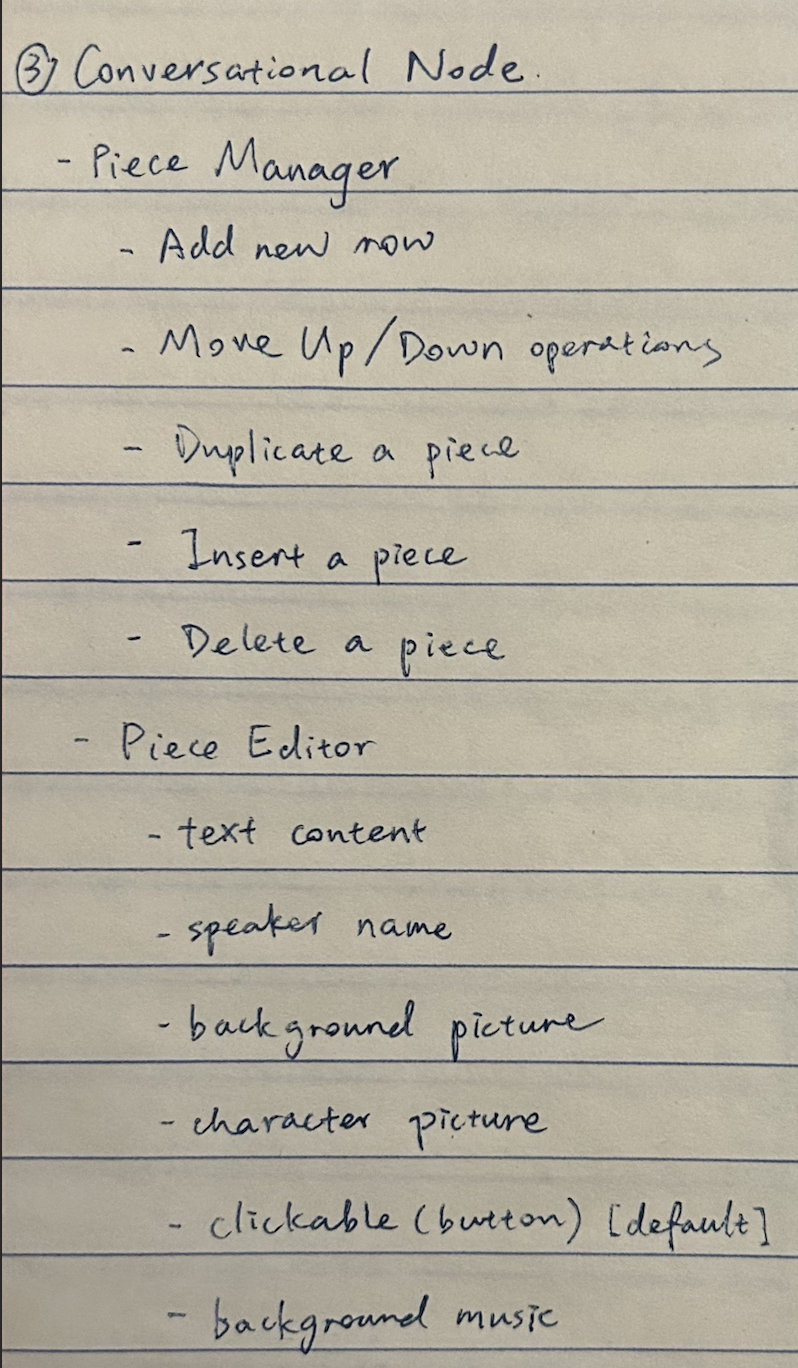 ③ Conversational Node.
- Piece Manager
- Add new row
- Move Up/Down operations
- Duplicate a piece
- Insert a piece
- Delete a piece
- Piece Editor
- text content
- speaker name
- background picture
- character picture
- clickable (button) [default]
- background music